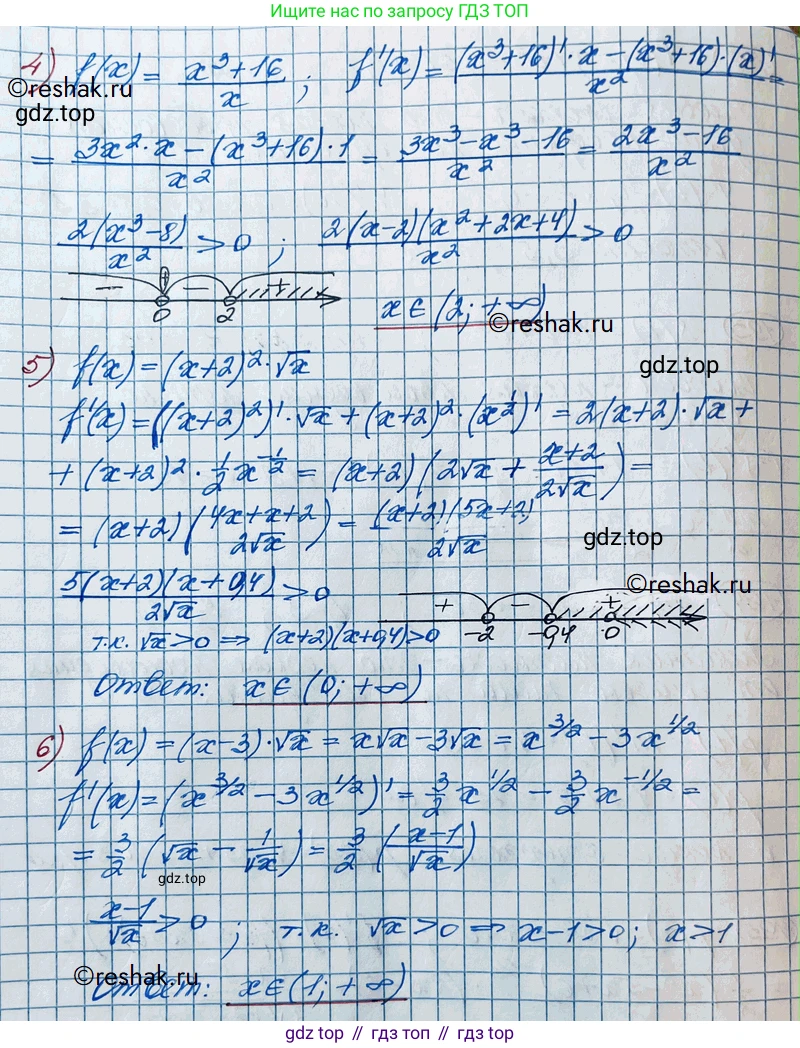 Ищите нас по запросу ГДЗ ТОП
4) f(x) = (x³+16)/x ; f'(x) = ((x³+16)'·x − (x³+16)·(x)')/x² =
©reshak.ru
gdz.top
= (3x²·x − (x³+16)·1)/x² = (3x³−x³−16)/x² = (2x³−16)/x²
2(x³−8)/x² > 0 ; 2(x−2)(x²+2x+4)/x² > 0
− − +
0 2
x ∈ (2; +∞)
©reshak.ru
5) f(x) = (x+2)²·√x
gdz.top
f'(x) = ((x+2)²)'·√x + (x+2)²·(x^(1/2))' = 2(x+2)·√x +
+ (x+2)²·1/2 x^(−1/2) = (x+2)(2√x + (x+2)/(2√x)) =
= (x+2)((4x+x+2)/(2√x)) = (x+2)(5x+2)/(2√x)
gdz.top
5(x+2)(x+0,4)/(2√x) > 0
©reshak.ru
+ − +
−2 −0,4 0
т.к. √x>0 ⇒ (x+2)(x+0,4)>0
Ответ: x ∈ (0; +∞)
6) f(x) = (x−3)·√x = x√x − 3√x = x^(3/2) − 3x^(1/2)
f'(x) = (x^(3/2) − 3x^(1/2))' = 3/2 x^(1/2) − 3/2 x^(−1/2) =
= 3/2 (√x − 1/√x) = 3/2 ((x−1)/√x)
gdz.top
(x−1)/√x > 0 ; т.к. √x>0 ⇒ x−1>0; x>1
©reshak.ru
Ответ: x∈(1; +∞)
gdz топ // гдз топ // gdz.top